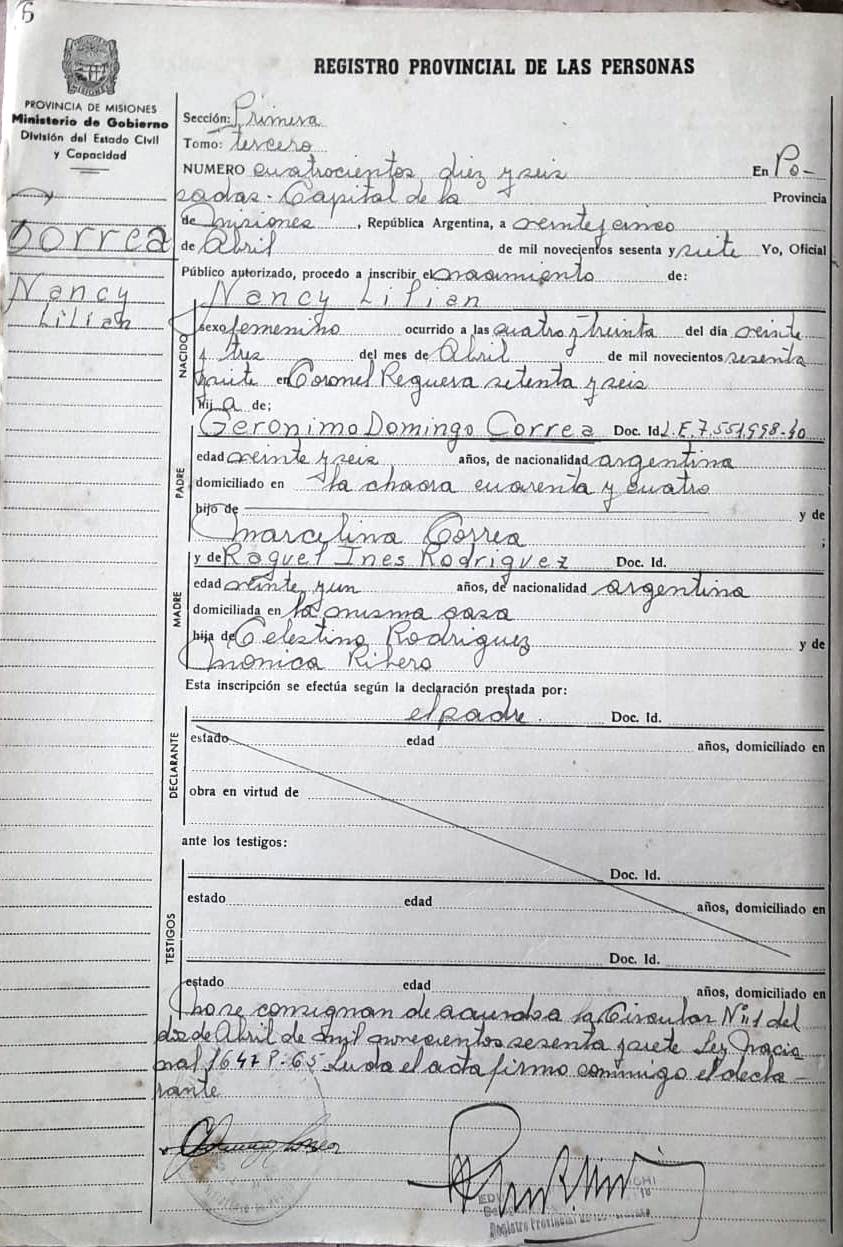 6
REGISTRO PROVINCIAL DE LAS PERSONAS
PROVINCIA DE MISIONES
Ministerio de Gobierno
División del Estado Civil
y Capacidad
Correa
Nancy
Lilian
Sección: Primera
Tomo: tercero
NUMERO cuatrocientos diez y seis En Po-
sadas - Capital de la Provincia
de Misiones, República Argentina, a veinte y cinco
de Abril de mil novecientos sesenta y siete Yo, Oficial
Público autorizado, procedo a inscribir el nacimiento de:
Nancy Lilian
NACIDO
sexo femenino ocurrido a las cuatro y treinta del día veinte
y tres del mes de Abril de mil novecientos sesenta
y siete en Coronel Reguera setenta y seis
hij a de;
PADRE
Geronimo Domingo Correa Doc. Id. L.E. 7.551.998-40
edad veinte y seis años, de nacionalidad argentina
domiciliado en la chacra cuarenta y cuatro
hijo de y de
Marcelina Correa ;
MADRE
y de Raquel Ines Rodriguez Doc. Id.
edad veinte y un años, de nacionalidad argentina
domiciliada en la misma casa
hija de Celestino Rodriguez y de
Monica Ribero
Esta inscripción se efectúa según la declaración prestada por:
DECLARANTE
el padre. Doc. Id.
estado edad años, domiciliado en
obra en virtud de
ante los testigos:
TESTIGOS
Doc. Id.
estado edad años, domiciliado en
Doc. Id.
estado edad años, domiciliado en
no se consignan de acuerdo a la Circular Nº 11 del
dos de Abril de mil novecientos sesenta y siete Ley Nacio
nal 16478-65 Leida el acta firmo conmigo el decla-
rante
Registro Provincial de las